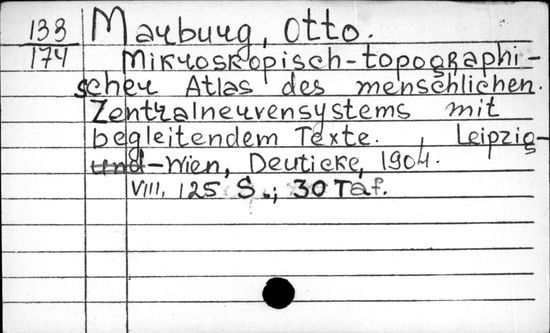 133
174
Marburg, Otto.
Mikroskopisch-topographi-
scher Atlas des menschlichen.
Zentralnervensystems mit
begleitendem Texte. , Leipzig-
und-Wien, Deuticke, 1904.
VIII, 125 S.; 30 Taf.